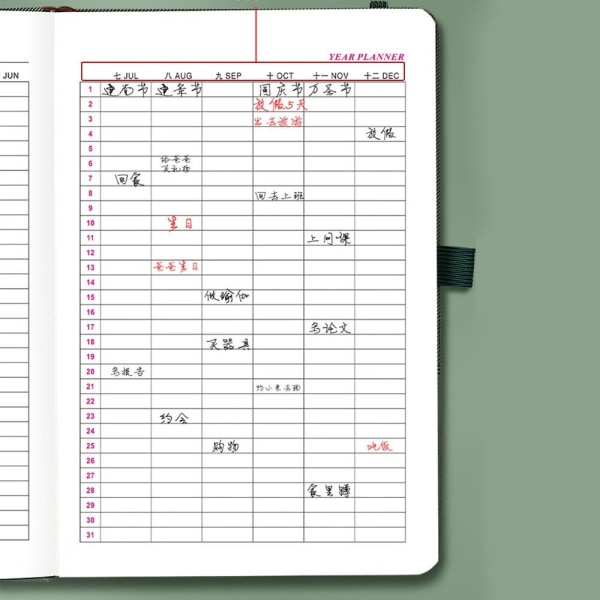 JUN
YEAR PLANNER
七 JUL 八 AUG 九 SEP 十 OCT 十一 NOV 十二 DEC
1 建党节 建军节 国庆节 万圣节
2 放假5天
3 出去旅游
4 放假
5
6 给爸爸
买礼物
7 回家
8 回去上班
9
10 生日
11 上网课
12
13 爸爸生日
14
15 做瑜伽
16
17 写论文
18 买器具
19
20 写报告
21 约小
22
23 约会
24
25 购物 吃饭
26
27
28 家里蹲
29
30
31